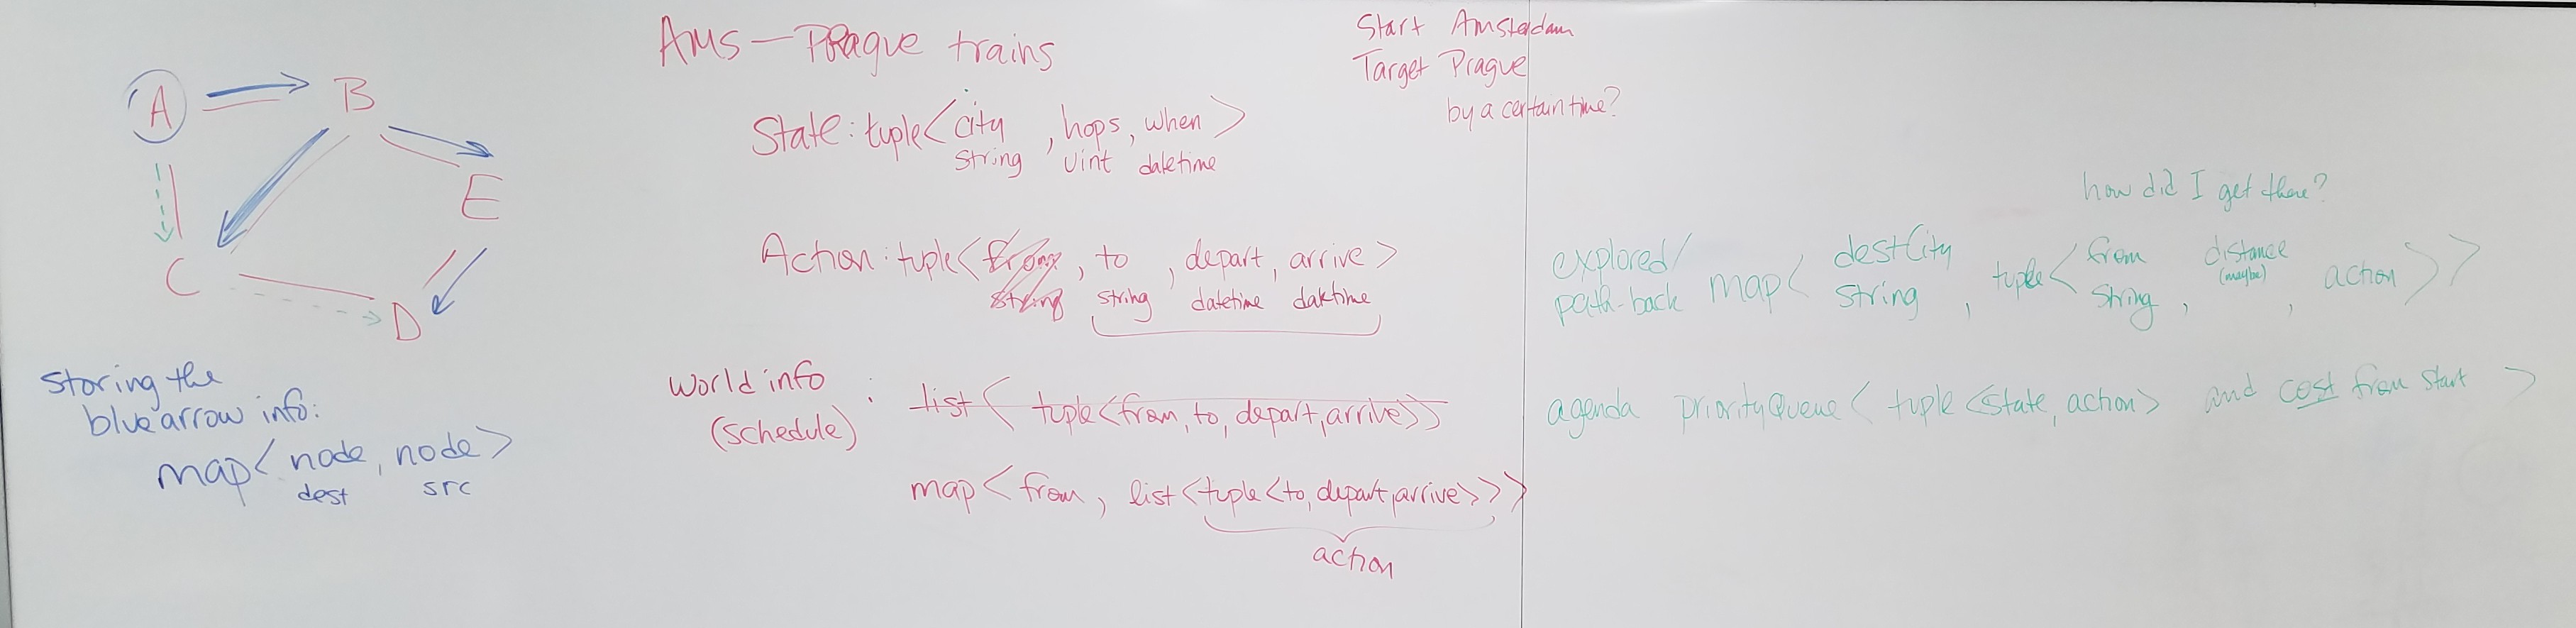 A
B
E
C
D
storing the
blue arrow info:
map< node, node >
dest src
Ams — Prague trains
State: tuple< city, hops, when >
string uint datetime
Action: tuple< from, to, depart, arrive >
string string datetime datetime
World info
(schedule) : list< tuple<from, to, depart, arrive>>
map< from, list<tuple<to, depart, arrive>>>
action
Start Amsterdam
Target Prague
by a certain time?
how did I get there?
explored/
path-back map< destCity, tuple< from, distance, action >>
string string (maybe)
agenda priorityQueue< tuple<state, action> and cost from start >